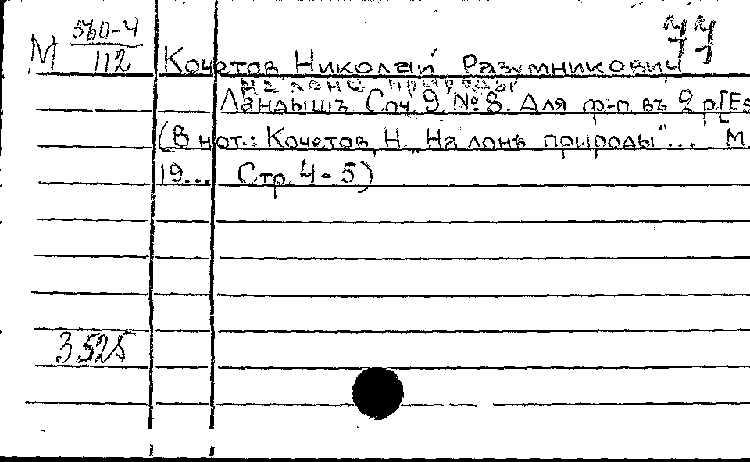 М 560-4/112
Кочетов Николай Разумникович
На лоне природы
Ландышъ Соч. 9 № 8. Для ф-п. въ 2 р. [Es
(В нот.: Кочетов, Н. На лонѣ природы"... М.
19... Стр. 4-5)
3525